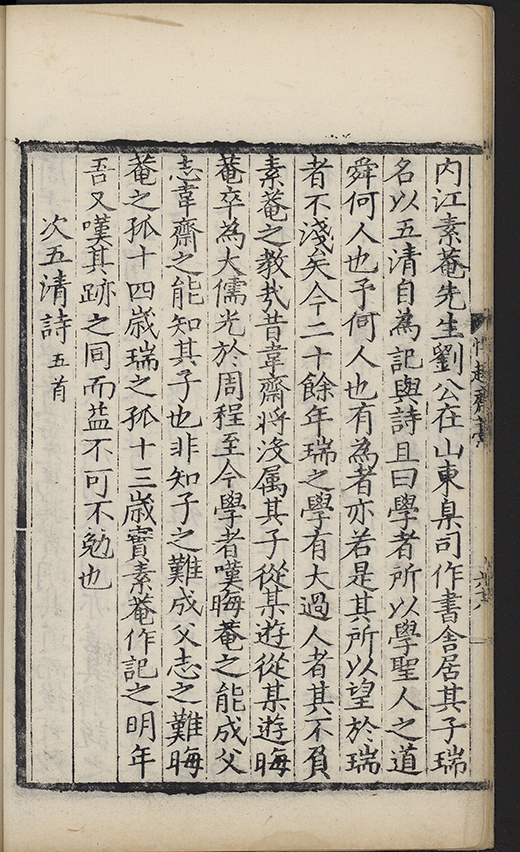 内江素菴先生劉公在山東臬司作書舎居其子瑞
名以五清自為記與詩且曰學者所以學聖人之道
舜何人也予何人也有為者亦若是其所以望於瑞
者不淺矣今二十餘年瑞之學有大過人者其不負
素菴之教㢤昔韋齋將沒属其子從某遊從某遊晦
菴卒為大儒光於周程至今學者嘆晦菴之能成父
志韋齋之能知其子也非知子之難成父志之難晦
菴之孤十四歳瑞之孤十三歳實素菴作記之明年
吾又嘆其跡之同而益不可不勉也
次五清詩五首